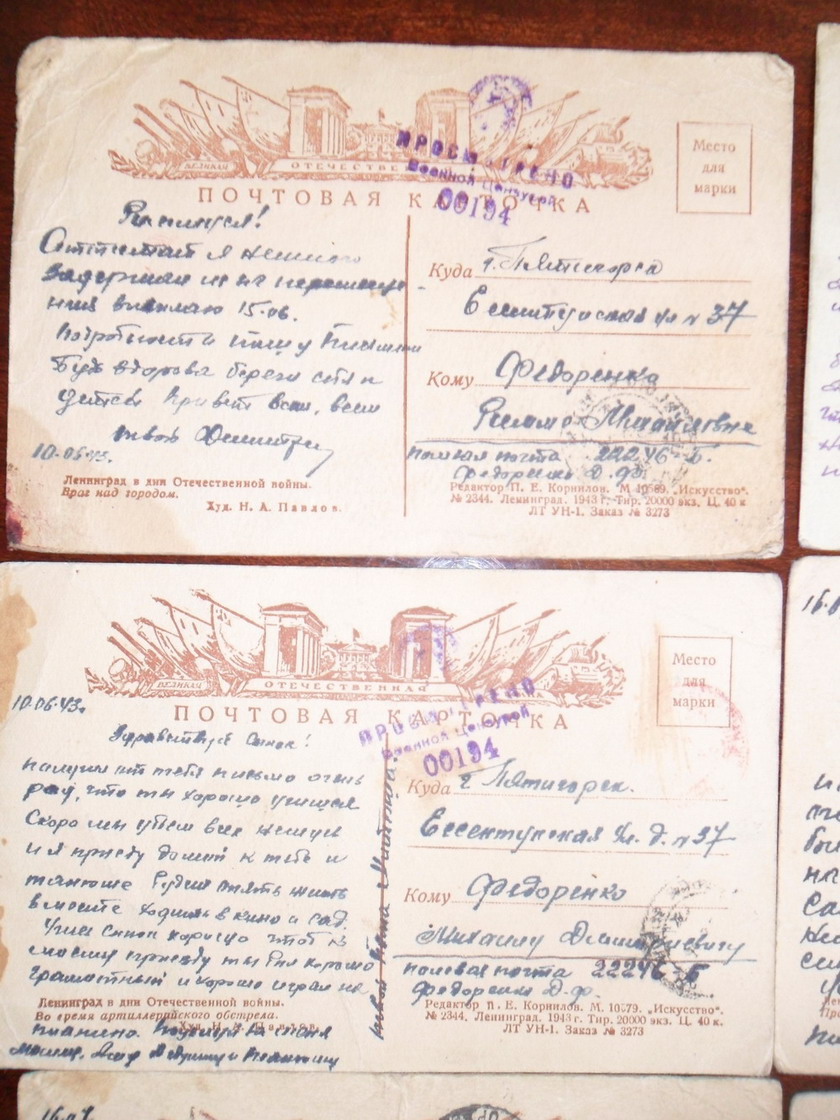 ВЕЛИКАЯ ОТЕЧЕСТВЕННАЯ
ПРОСМОТРЕНО
Военной Цензурой
00194
ПОЧТОВАЯ КАРТОЧКА
Место
для
марки
задержал
высылаю 15.06.
Подробности пишу
Будь здорова береги себя и
детей Привет всем, всем
твой Дмитрий
10.06.43.
Ленинград в дни Отечественной войны.
Враг над городом.
Худ. Н. А. Павлов.
Куда г. Пятигорск
Ессентукская ул № 37
Кому Федоренко
Римме Михайловне
полевая почта 22246 Б.
Федоренко Д. Ф.
Редактор П. Е. Корнилов. М 10589. „Искусство".
№ 2344. Ленинград. 1943 г. Тир. 20000 экз. Ц. 40 к
ЛТ УН-1. Заказ № 3273
ВЕЛИКАЯ ОТЕЧЕСТВЕННАЯ
ПРОСМОТРЕНО
Военной Цензурой
00194
ПОЧТОВАЯ КАРТОЧКА
Место
для
марки
10.06.43г
Здравствуй Сынок!
получил от тебя письмо очень
рад, что ты хорошо учишься
Скоро мы убьем всех немцев
и я приеду домой к тебе и
танюше будем опять жить
вместе ходить в кино и сад.
Учись сынок хорошо чтоб к
моему приезду ты был хорошо
грамотный и хорошо играл на
пианино. Поцелуй за меня
маму, бабушку и танюшу
твой папа Дмитрий.
Ленинград в дни Отечественной войны.
Во время артиллерийского обстрела.
Худ. Н. А. Павлов.
Куда г Пятигорск.
Ессентукская ул. д. № 37
Кому Федоренко
Михаилу Дмитриевичу
полевая почта 22246 - Б
Федоренко Д. Ф.
Редактор П. Е. Корнилов. М. 10579. „Искусство".
№ 2344. Ленинград. 1943 г. Тир. 20000 экз. Ц. 40 к.
ЛТ УН-1. Заказ № 3273